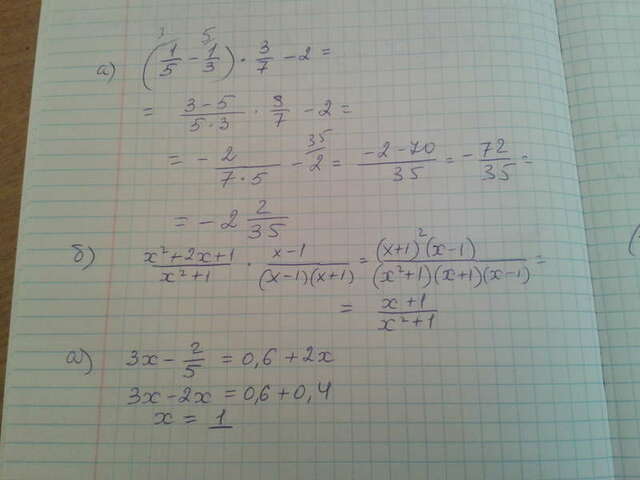 а) (1/5 - 1/3) · 3/7 - 2 =
= (3-5)/(5·3) · 3/7 - 2 =
= - 2/(7·5) - 2 = (-2-70)/35 = - 72/35 =
= - 2 2/35
б) (x²+2x+1)/(x²+1) · (x-1)/((x-1)(x+1)) = ((x+1)²(x-1))/((x²+1)(x+1)(x-1)) =
= (x+1)/(x²+1)
а) 3x - 2/5 = 0,6 + 2x
3x - 2x = 0,6 + 0,4
x = 1